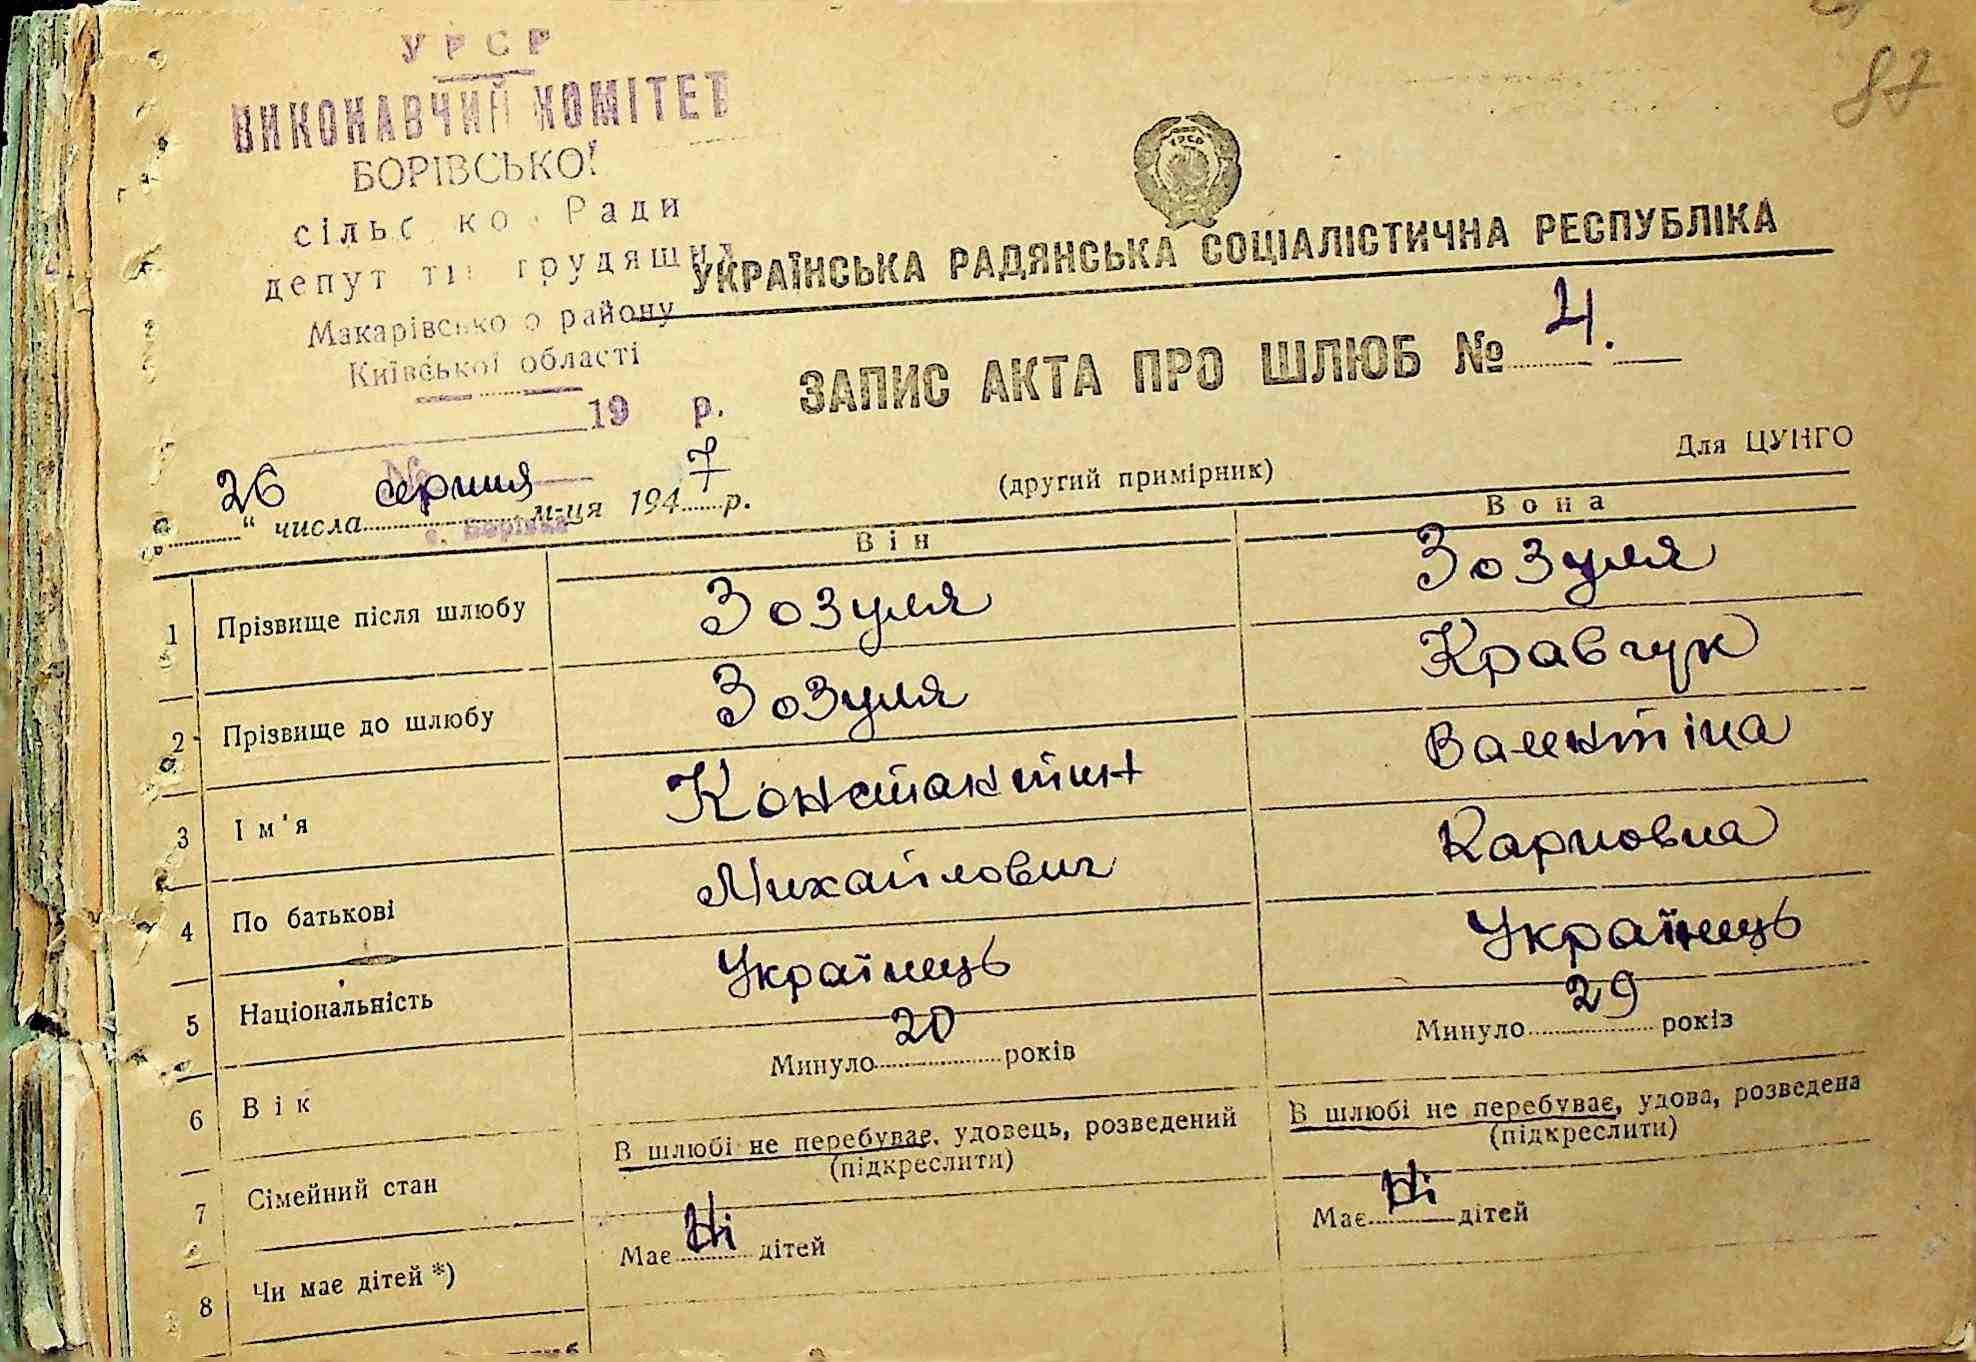 87
УРСР
ВИКОНАВЧИЙ КОМІТЕТ
БОРІВСЬКОЇ
сільс ко Ради
депут ті трудящих
Макарівсько о району
Київської області
19 р.
№
с. Борівка
УРСР
УКРАЇНСЬКА РАДЯНСЬКА СОЦІАЛІСТИЧНА РЕСПУБЛІКА
ЗАПИС АКТА ПРО ШЛЮБ № 4.
26 “ числа серпня м-ця 1947 р.
(другий примірник)
Для ЦУНГО
Він Вона
1 Прізвище після шлюбу Зозуля Зозуля
2 Прізвище до шлюбу Зозуля Кравчук
3 Ім'я Константин Валентіна
4 По батькові Михайлович Карповна
5 Національність Українець Українець
6 Вік Минуло 20 років Минуло 29 років
7 Сімейний стан В шлюбі не перебуває, удовець, розведений В шлюбі не перебуває, удова, розведена
(підкреслити) (підкреслити)
8 Чи має дітей *) Має Ні дітей Має Ні дітей